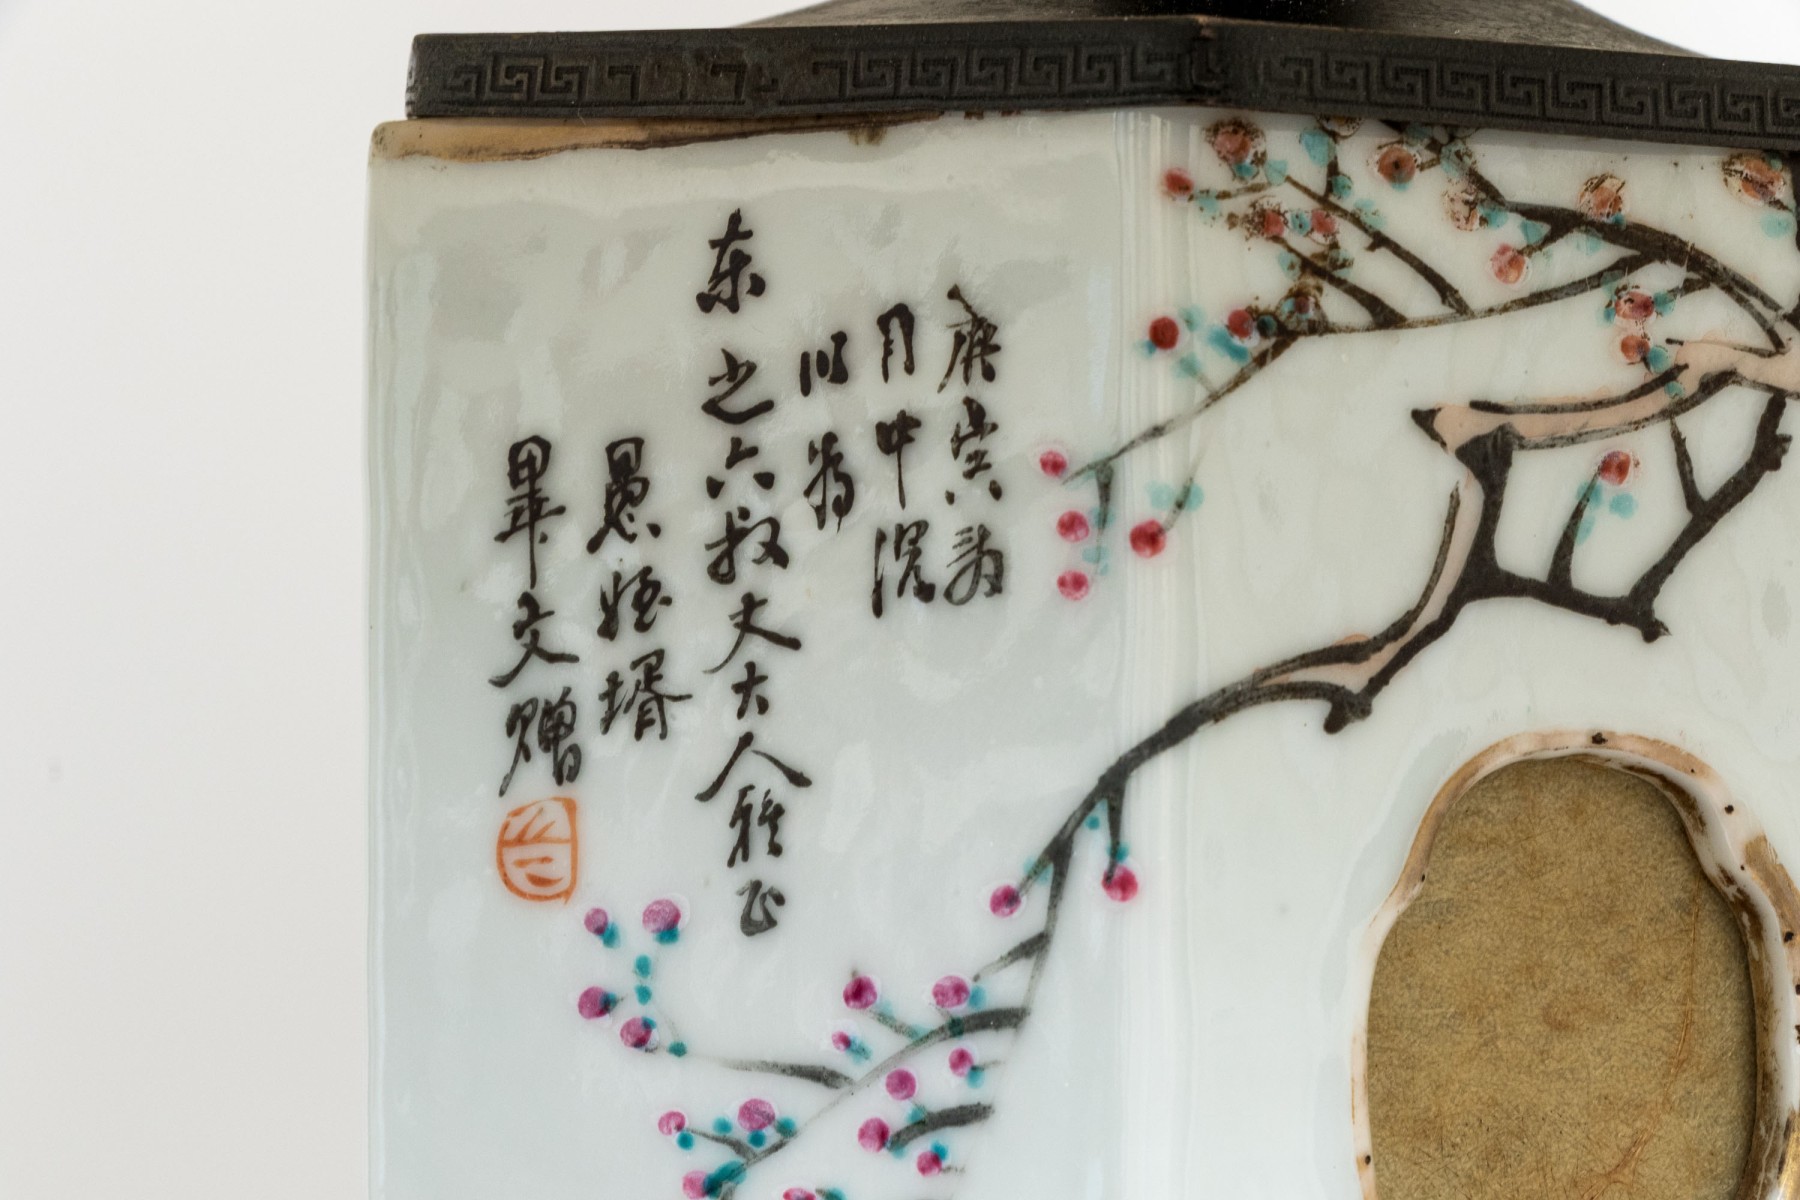 庚寅荷
月中浣
以為
東之六叔丈大人雅正
愚姪壻
畢文贈